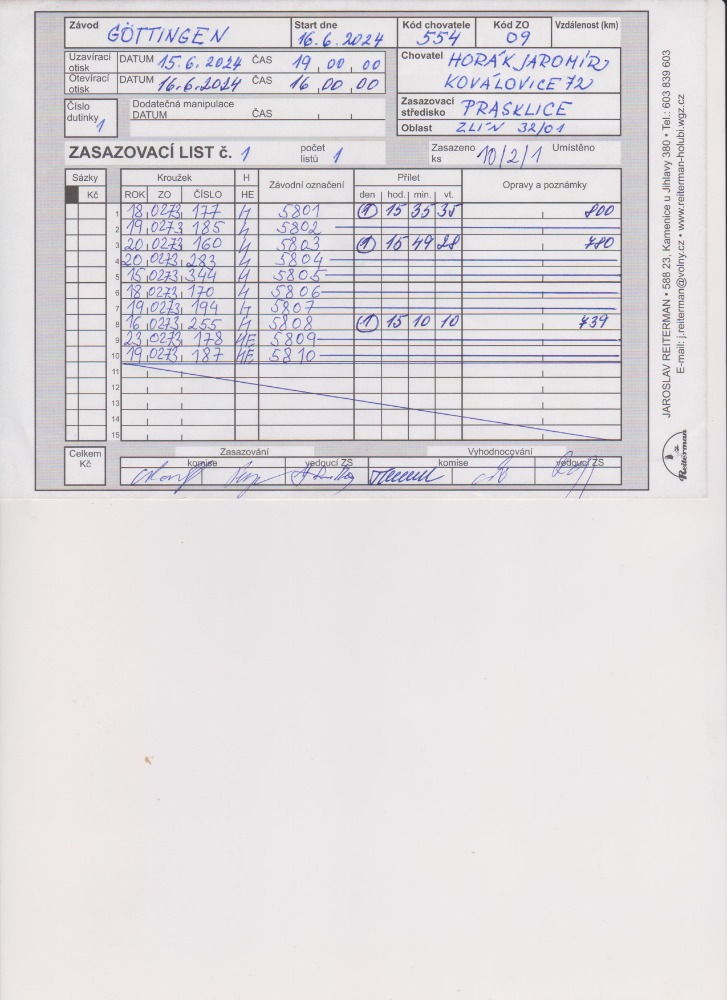 Závod GÖTTINGEN Start dne 16.6.2024 Kód chovatele 554 Kód ZO 09 Vzdálenost (km)
Uzavírací otisk DATUM 15.6.2024 ČAS 19 00 00
Otevírací otisk DATUM 16.6.2024 ČAS 16 00 00
Chovatel HORÁK JAROMÍR
KOVÁLOVICE 72
Číslo dutinky 1 Dodatečná manipulace
DATUM ČAS
Zasazovací středisko PRASKLICE
Oblast ZLÍN 32/01
ZASAZOVACÍ LIST č. 1 počet listů 1 Zasazeno ks 10/2/1 Umístěno
Sázky Kroužek H Závodní označení Přílet Opravy a poznámky
Kč ROK ZO ČÍSLO HE den hod. min. vt.
1 18 0273 177 H 5801 1 15 35 35 800
2 19 0273 185 H 5802
3 20 0273 160 H 5803 1 15 49 28 780
4 20 0273 283 H 5804
5 15 0273 344 H 5805
6 18 0273 170 H 5806
7 19 0273 194 H 5807
8 16 0273 255 H 5808 1 15 10 10 739
9 23 0273 178 HE 5809
10 19 0273 187 HE 5810
11
12
13
14
15
Celkem Kč Zasazování Vyhodnocování
komise vedoucí ZS komise vedoucí ZS
JAROSLAV REITERMAN • 588 23, Kamenice u Jihlavy 380 • Tel.: 603 839 603
E-mail: j.reiterman@volny.cz • www.reiterman-holubi.wgz.cz
Reiterman